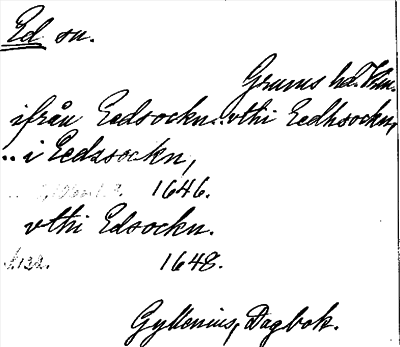 Ed sn.
Grums hd. Vrm.
ifrån Eedsockn. vthi Eedhsockn,
.. i Eedssockn,
1646.
vthi Edsockn.
1648.
Gyllenius, Dagbok.